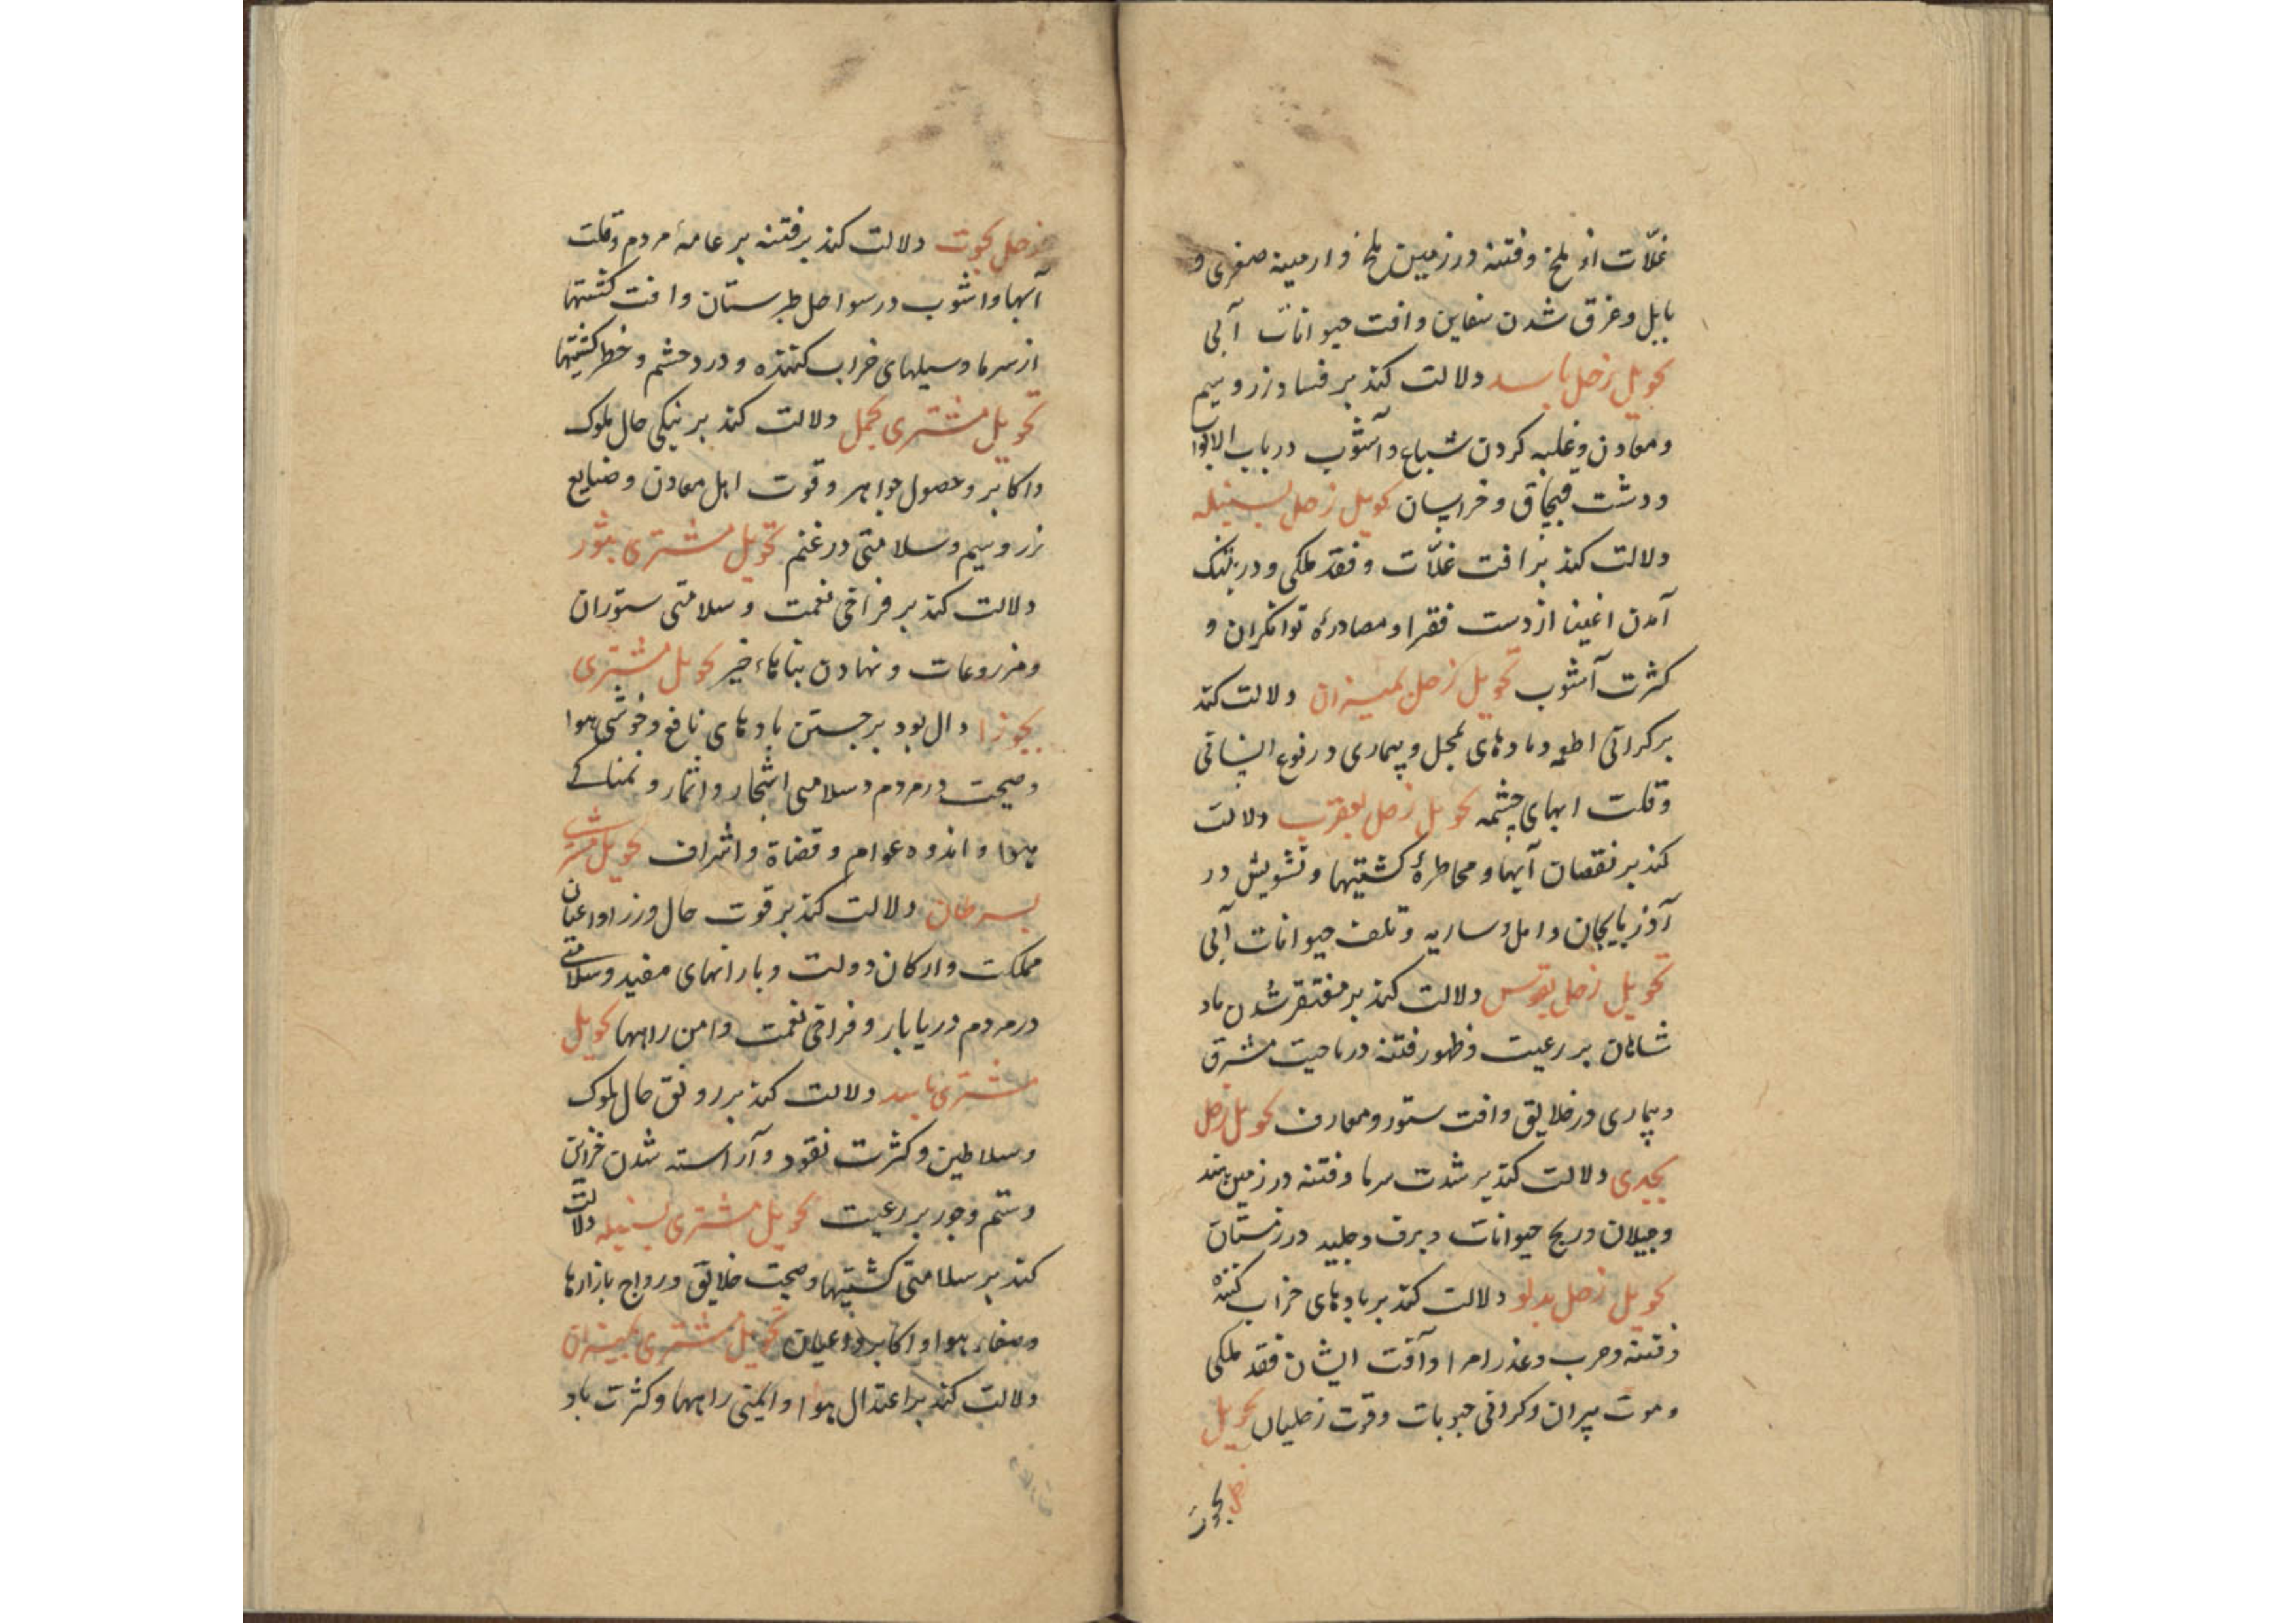 غلّات از ملخ و فتنه در زمین بلخ و ارمینه صغری و
بابل و غرق شدن سفاین و افت حیوانات آبی
تحویل زحل باسد دلالت کند بر فساد زر و سیم
و معادن و غلبه کردن سباع و آشوب در باب الابواب
و دشت قبچاق و خراسان تحویل زحل بسنبله
دلالت کند بر افت غلّات و فقد ملکی و در تنک
آمدن اغنیا از دست فقرا و مصادرهٔ توانکران و
کثرت آشوب تحویل زحل بمیزان دلالت کند
بر کرانی اطعمه و بادهای و بیماری در نوع انسانی
و قلت ابهای چشمه تحویل زحل بعقرب دلالت
کند بر نقصان آبها و مخاطرهٔ کشتیها و تشویش در
آذربایجان و امل و ساریه و تلف حیوانات آبی
تحویل زحل بقوس دلالت کند بر مفتقر شدن باد
شاهان بر رعیت و ظهور فتنه در ناحیت مشرق
و بیماری در خلایق و افت ستور و معارف تحویل زحل
بجدی دلالت کند بر شدت سرما و فتنه در زمین هند
و جیلان و ریح حیوانات و برف و جلید در زمستان
تحویل زحل بدلو دلالت کند بر بادهای خراب کننده
و فتنه و حرب و غدر امرا و آفت ایشان فقد ملکی
و موت پیران و کرانی حبوبات و قوت زحلیان تحویل
زحل بحوت
زحل بحوت دلالت کند بر فتنه بر عامهٔ مردم و قلت
آبها و اشوب در سواحل طبرستان و افت کشتها
از سرما و سیلهای خراب کننده و درد چشم و خطر کشتیها
تحویل مشتری بحمل دلالت کند بر نیکی حال ملوک
و اکابر و حصول جواهر و قوت اهل معادن و صنایع
زر و سیم و سلامتی در غنم تحویل مشتری بثور
دلالت کند بر فراخی نعمت و سلامتی ستوران
و مزروعات و نهادن بناهاء خیر تحویل مشتری
بجوزا دال بود بر جستن بادهای نافع و خوشی هوا
و صحت در مردم و سلامتی اشجار و اثمار و نمناکی
هوا و اندوه عوام و قضاة و اشراف تحویل مشتری
بسرطان دلالت کند بر قوت حال وزرا و اعیان
مملکت و ارکان دولت و بارانهای مفید و سلامتی
در مردم دریابار و فراخی نعمت و امن راهها تحویل
مشتری باسد دلالت کند بر رونق حال ملوک
و سلاطین و کثرت نقود و آراسته شدن خزاین
و ستم و جور بر رعیت تحویل مشتری بسنبله دلالت
کند بر سلامتی کشتیها و صحت خلایق و رواج بازارها
و صفاء هوا و اکابر و اعیان تحویل مشتری بمیزان
دلالت کند بر اعتدال هوا و ایمنی راهها و کثرت باد